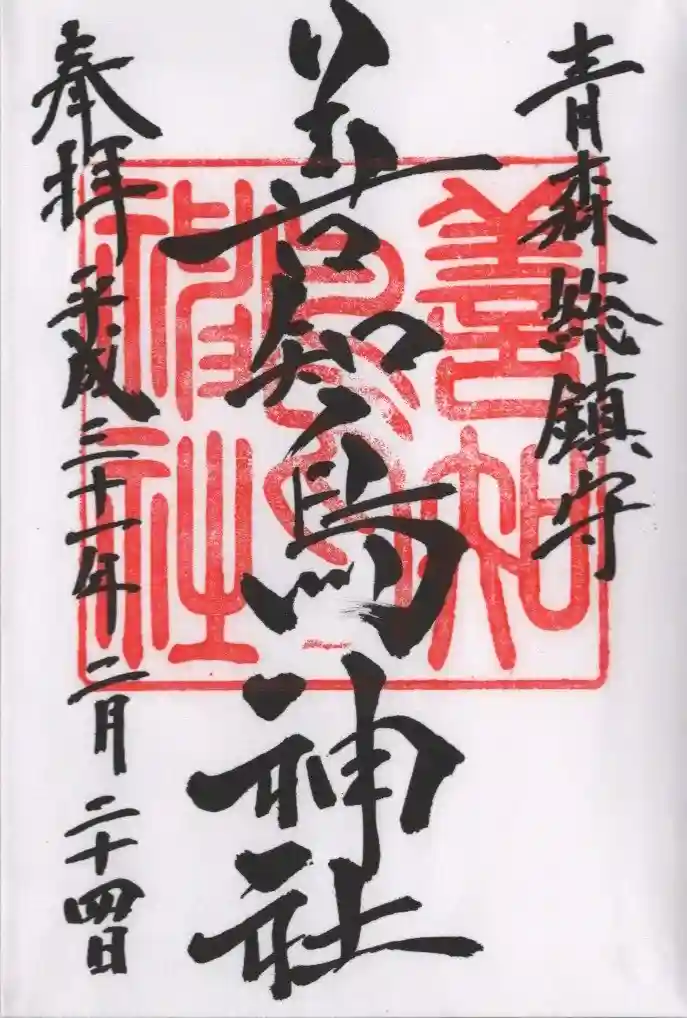 青森総鎮守
善知鳥神社
奉拝
平成三十一年二月二十四日
善知
鳥神社